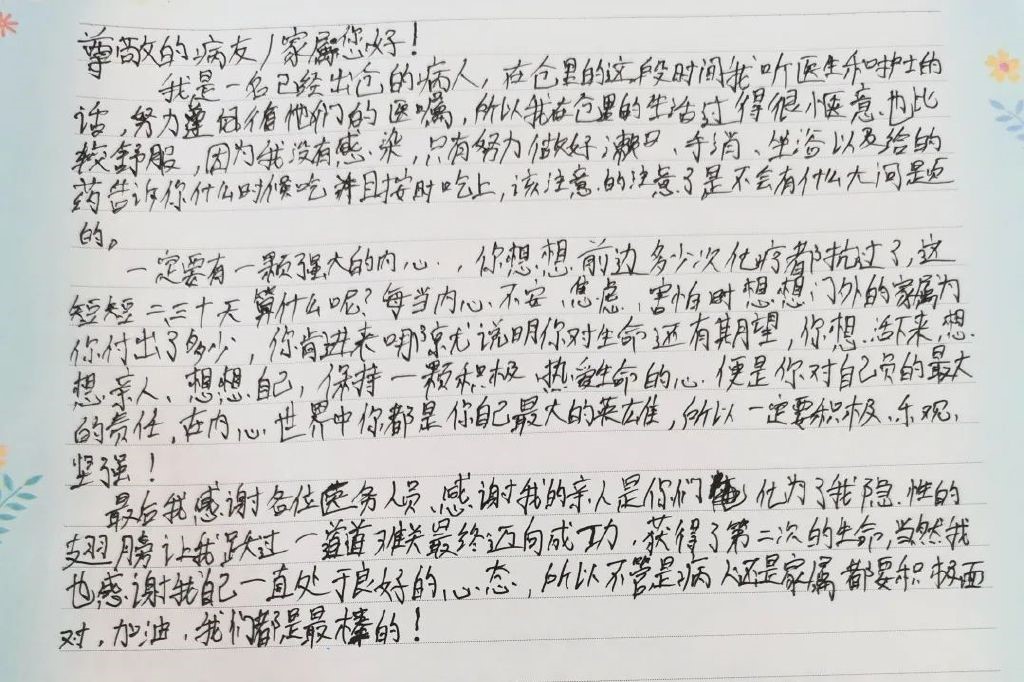 尊敬的病友/家属您好！
我是一名已经出仓的病人，在仓里的这段时间我听医生和护士的
话，努力遵循他们的医嘱，所以我在仓里的生活过得很惬意也比
较舒服，因为我没有感染，只有努力做好漱口、手消、坐浴以及给的
药告诉你什么时候吃并且按时吃上，该注意的注意了是不会有什么大问题
的。
一定要有一颗强大的内心，你想想前边多少次化疗都抗过了，这
短短二三十天算什么呢？每当内心不安、焦虑、害怕时想想门外的家属为
你付出了多少，你肯进来哪就说明你对生命还有期望，你想活下来，想
想亲人、想想自己，保持一颗积极、热爱生命的心便是你对自己负的最大
的责任，在内心世界中你都是你自己最大的英雄，所以一定要积极、乐观、
坚强！
最后我感谢各位医务人员，感谢我的亲人是你们化为了我隐性的
翅膀让我跃过一道道难关最终迈向成功，获得了第二次的生命，当然我
也感谢我自己一直处于良好的心态，所以不管是病人还是家属都要积极面
对，加油，我们都是最棒的！